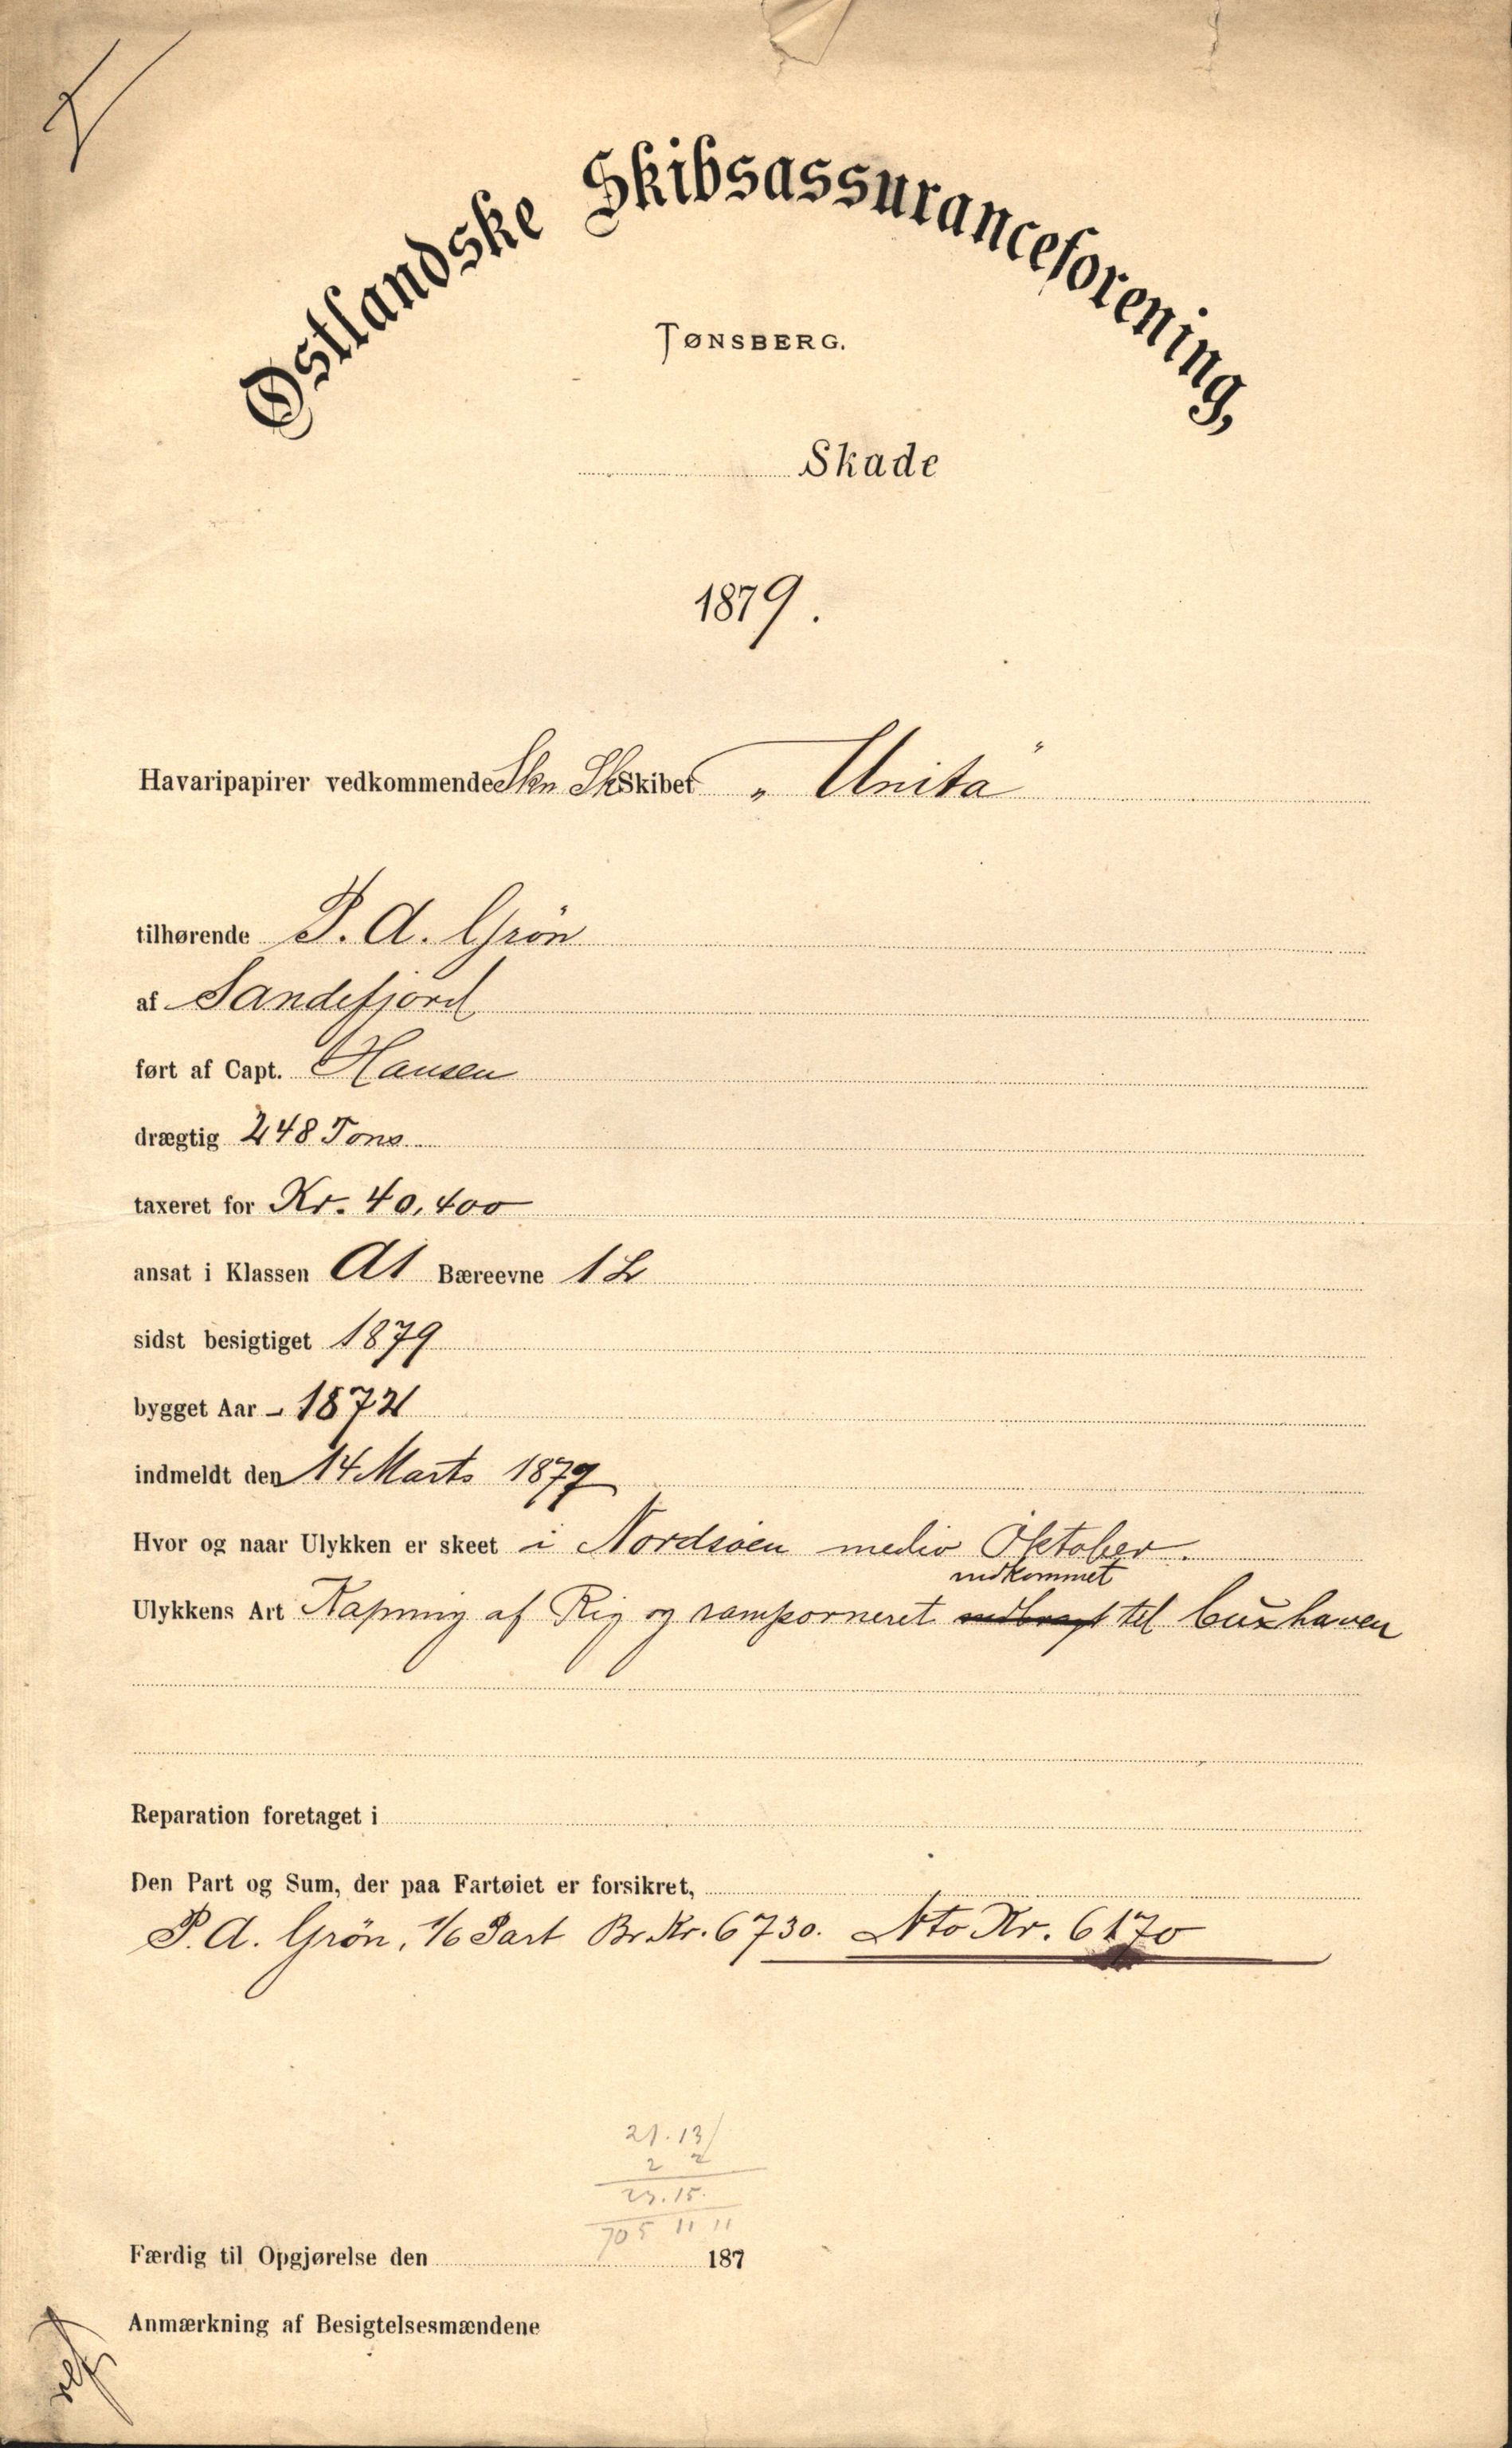 Østlandske Skibsassuranceforening,
TØNSBERG.
Skade
1879.
Havaripapirer vedkommende Skn Sk Skibet „Unita"
tilhørende P. A. Grön
af Sandefjord
ført af Capt. Hansen
drægtig 248 Tons
taxeret for Kr. 40,400
ansat i Klassen A1 Bæreevne
sidst besigtiget 1879
bygget Aar - 1872
indmeldt den 14 Marts 1879
Hvor og naar Ulykken er skeet i Nordsöen medio Oktober.
indkommet
Ulykkens Art Kapning af Rig og ramponeret indbragt til Cuxhaven
Reparation foretaget i
Den Part og Sum, der paa Fartøiet er forsikret,
P. A. Grön, 1/6 Part Br. Kr. 6730. Nto Kr. 6170
21.13
2 2
23.15.
705 11 11
Færdig til Opgjørelse den 187
Anmærkning af Besigtelsesmændene